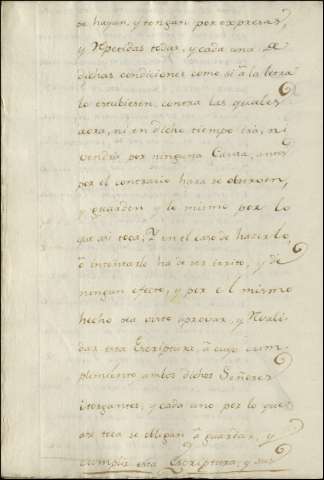 se hayan, y tengan por expresas,
y Repetidas todas, y cada una de
dichas condiciones como si â la letra
lo estubiesen, contra las quales
aora, ni en dicho tiempo irâ, ni
vendrâ por ninguna Causa, antes
por el contrario hara se observen,
y guarden y lo mismo por lo
que asi toca, Y en el caso de hacerlo,
ô intentarlo ha de ser irrito, y de
ningun efecto, y por el mismo
hecho sea visto aprovar, y Revali
dar esta Escriptura, â cuyo cum
plimiento ambos dichos Señores
otorgantes, y cada uno por lo que
asi toca se obligan â guardar, y
cumplir esta Escriptura, y sus